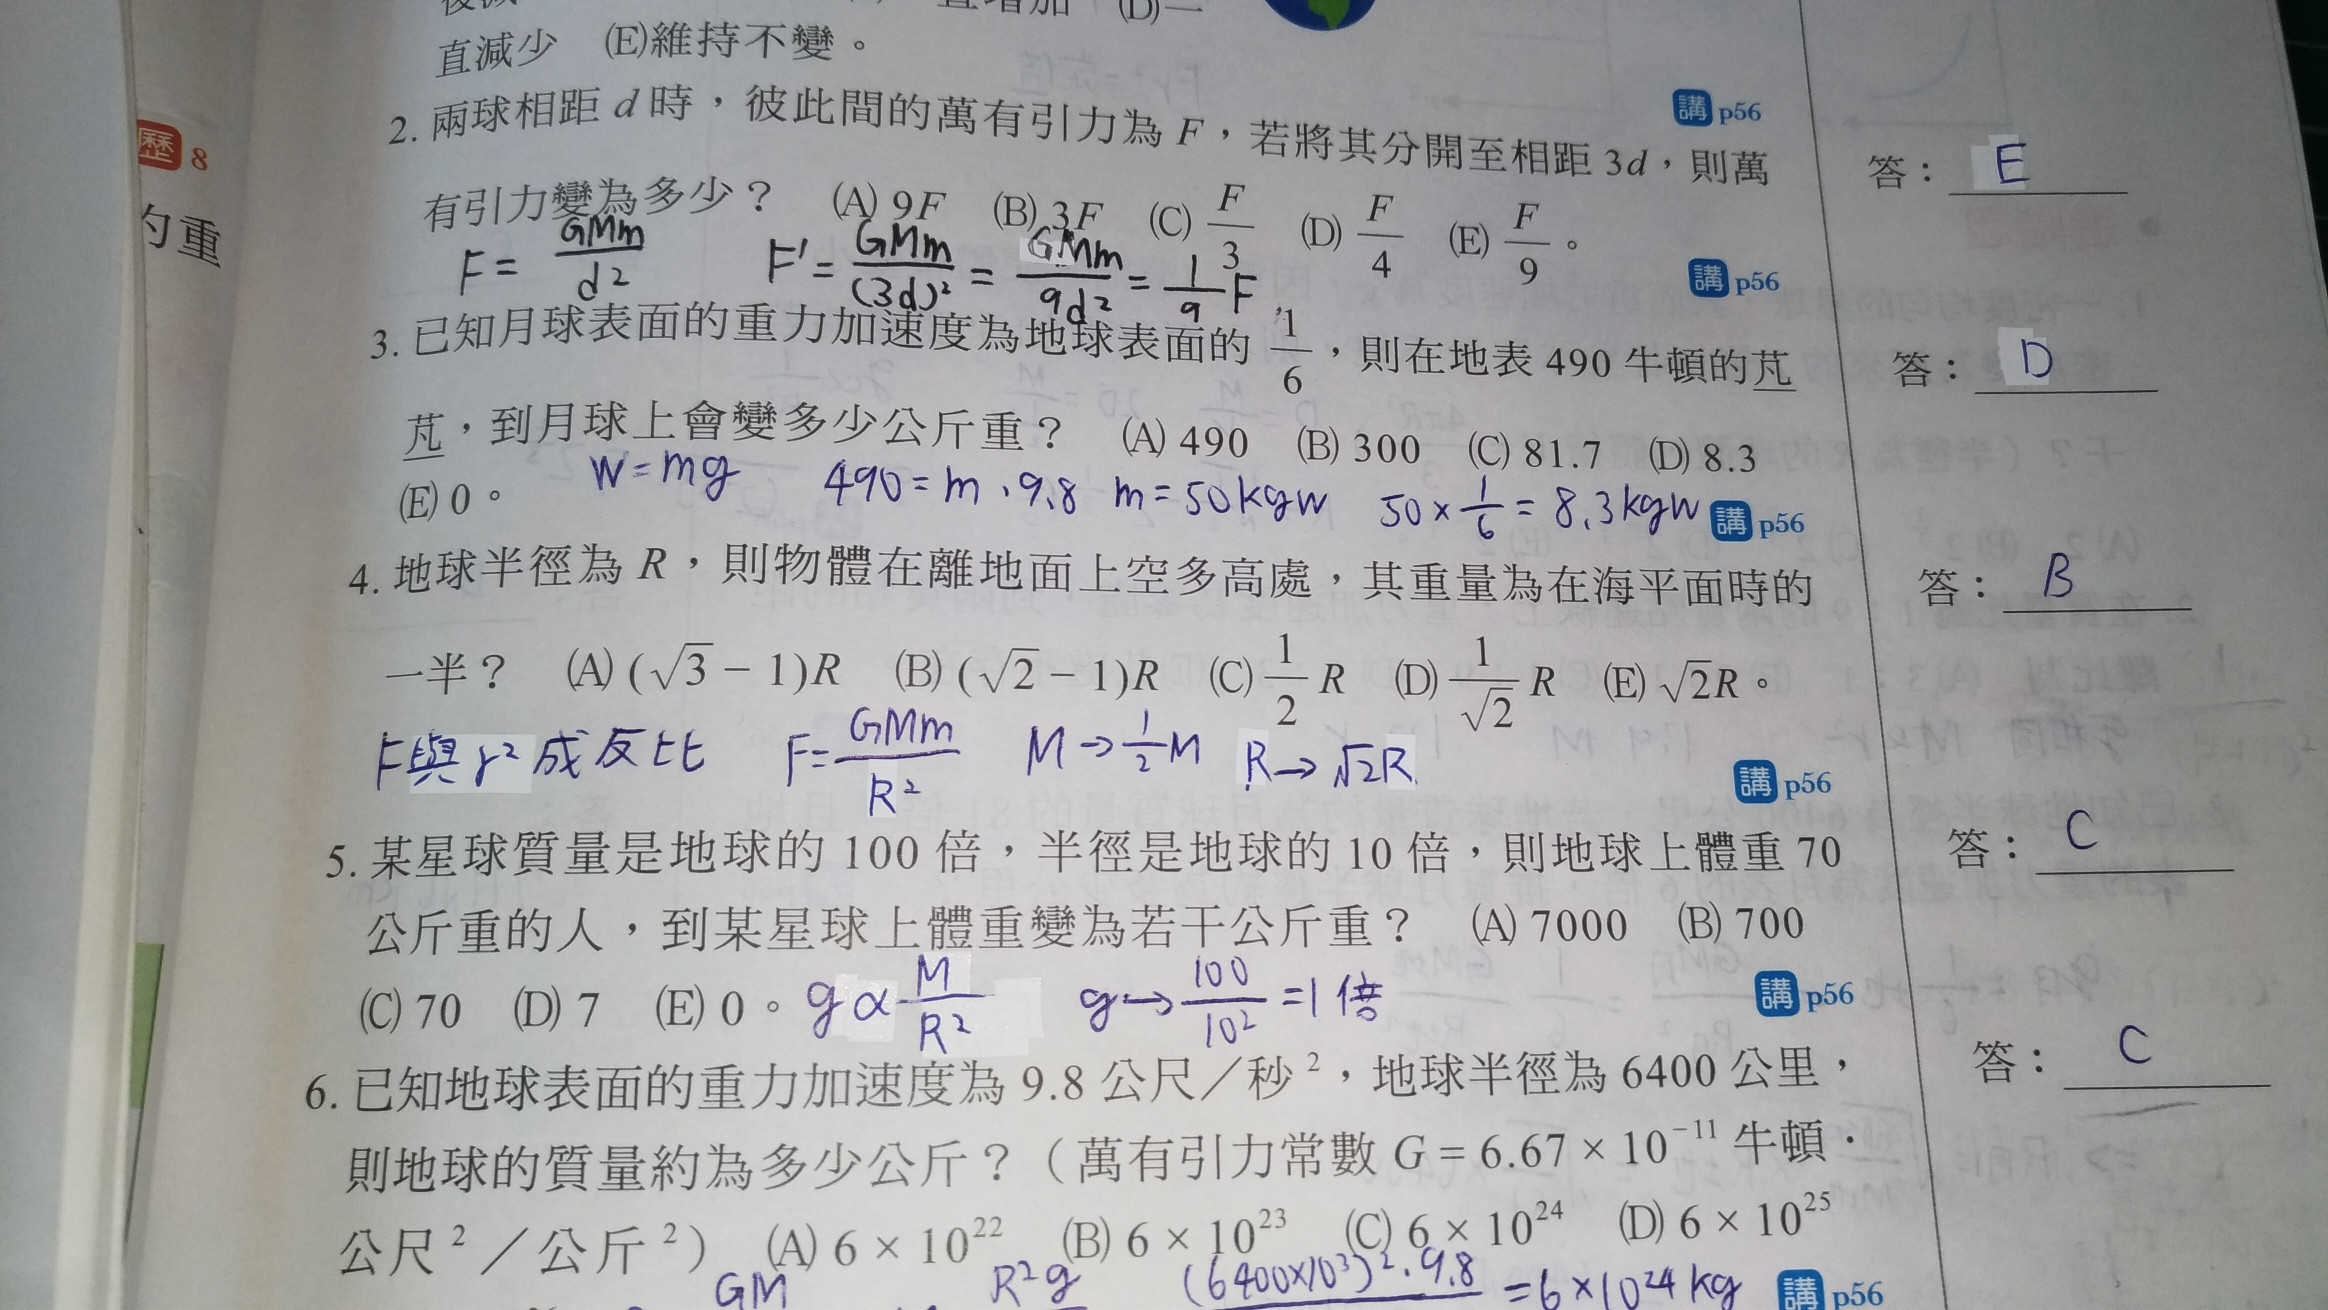 直增加 (D)一
直減少 (E)維持不變。
講 p56
2. 兩球相距 d 時，彼此間的萬有引力為 F，若將其分開至相距 3d，則萬
答：E
歷 8
有引力變為多少？ (A) 9F (B) 3F (C) F/3 (D) F/4 (E) F/9。
的重
F = GMm/d² F' = GMm/(3d)² = GMm/9d² = 1/9 F
講 p56
3. 已知月球表面的重力加速度為地球表面的 1/6，則在地表 490 牛頓的芃
答：D
芃，到月球上會變多少公斤重？ (A) 490 (B) 300 (C) 81.7 (D) 8.3
(E) 0。
W = mg 490 = m · 9.8 m = 50 kgw 50 × 1/6 = 8.3 kgw
講 p56
4. 地球半徑為 R，則物體在離地面上空多高處，其重量為在海平面時的
答：B
一半？ (A) (√3 − 1)R (B) (√2 − 1)R (C) 1/2 R (D) 1/√2 R (E) √2R。
F與r²成反比 F = GMm/R² M → 1/2 M R → √2R
講 p56
5. 某星球質量是地球的 100 倍，半徑是地球的 10 倍，則地球上體重 70
答：C
公斤重的人，到某星球上體重變為若干公斤重？ (A) 7000 (B) 700
(C) 70 (D) 7 (E) 0。 g ∝ M/R² g → 100/10² = 1 倍
講 p56
6. 已知地球表面的重力加速度為 9.8 公尺／秒²，地球半徑為 6400 公里，
答：C
則地球的質量約為多少公斤？（萬有引力常數 G = 6.67 × 10⁻¹¹ 牛頓·
公尺²／公斤²） (A) 6 × 10²² (B) 6 × 10²³ (C) 6 × 10²⁴ (D) 6 × 10²⁵
GM R²g (6400×10³)² · 9.8 = 6 × 10²⁴ kg
講 p56